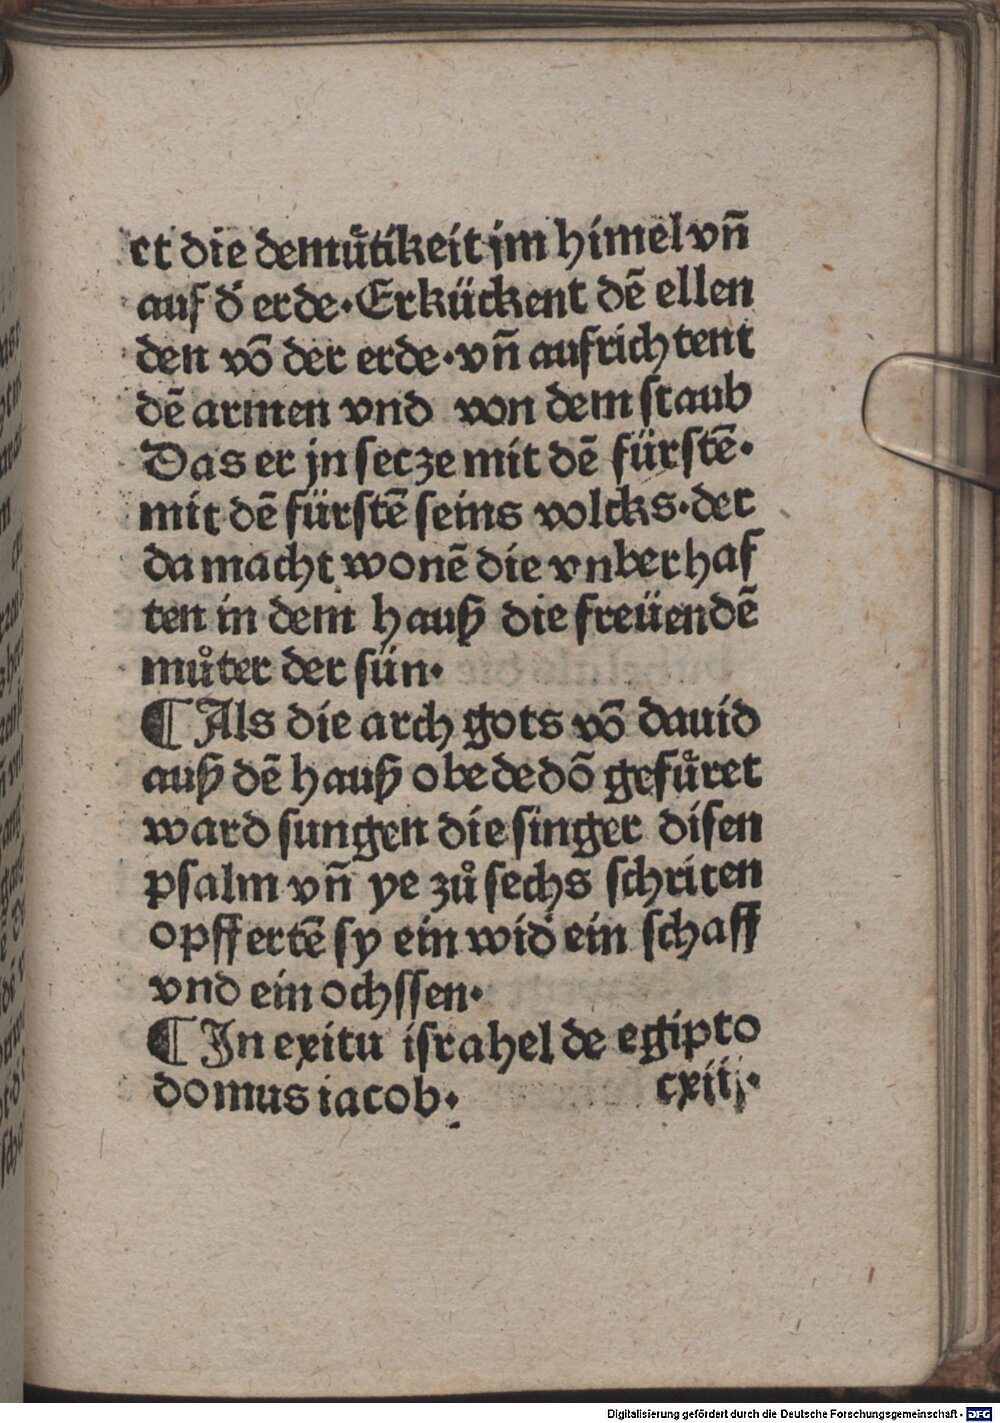 et die demuͤtikeit jm himel vñ
auf d' erde·Erkückent dē ellen
den vō der erde·vñ aufrichtent
dē armen vnd von dem staub
Das er jn setze mit dē fürstē·
mit dē fürstē seins volcks·der
da macht wonē die vnberhaf
ten in dem hauß die freüendē
muͦter der sün·
¶ Als die arch gots vō dauid
auß dē hauß obededō gefuͤret
ward sungen die singer disen
psalm vñ ye zuͦ sechs schriten
opffertē sy ein wid' ein schaff
vnd ein ochssen·
¶ In exitu israhel de egipto
domus iacob· cxiij·
Digitalisierung gefördert durch die Deutsche Forschungsgemeinschaft - DFG